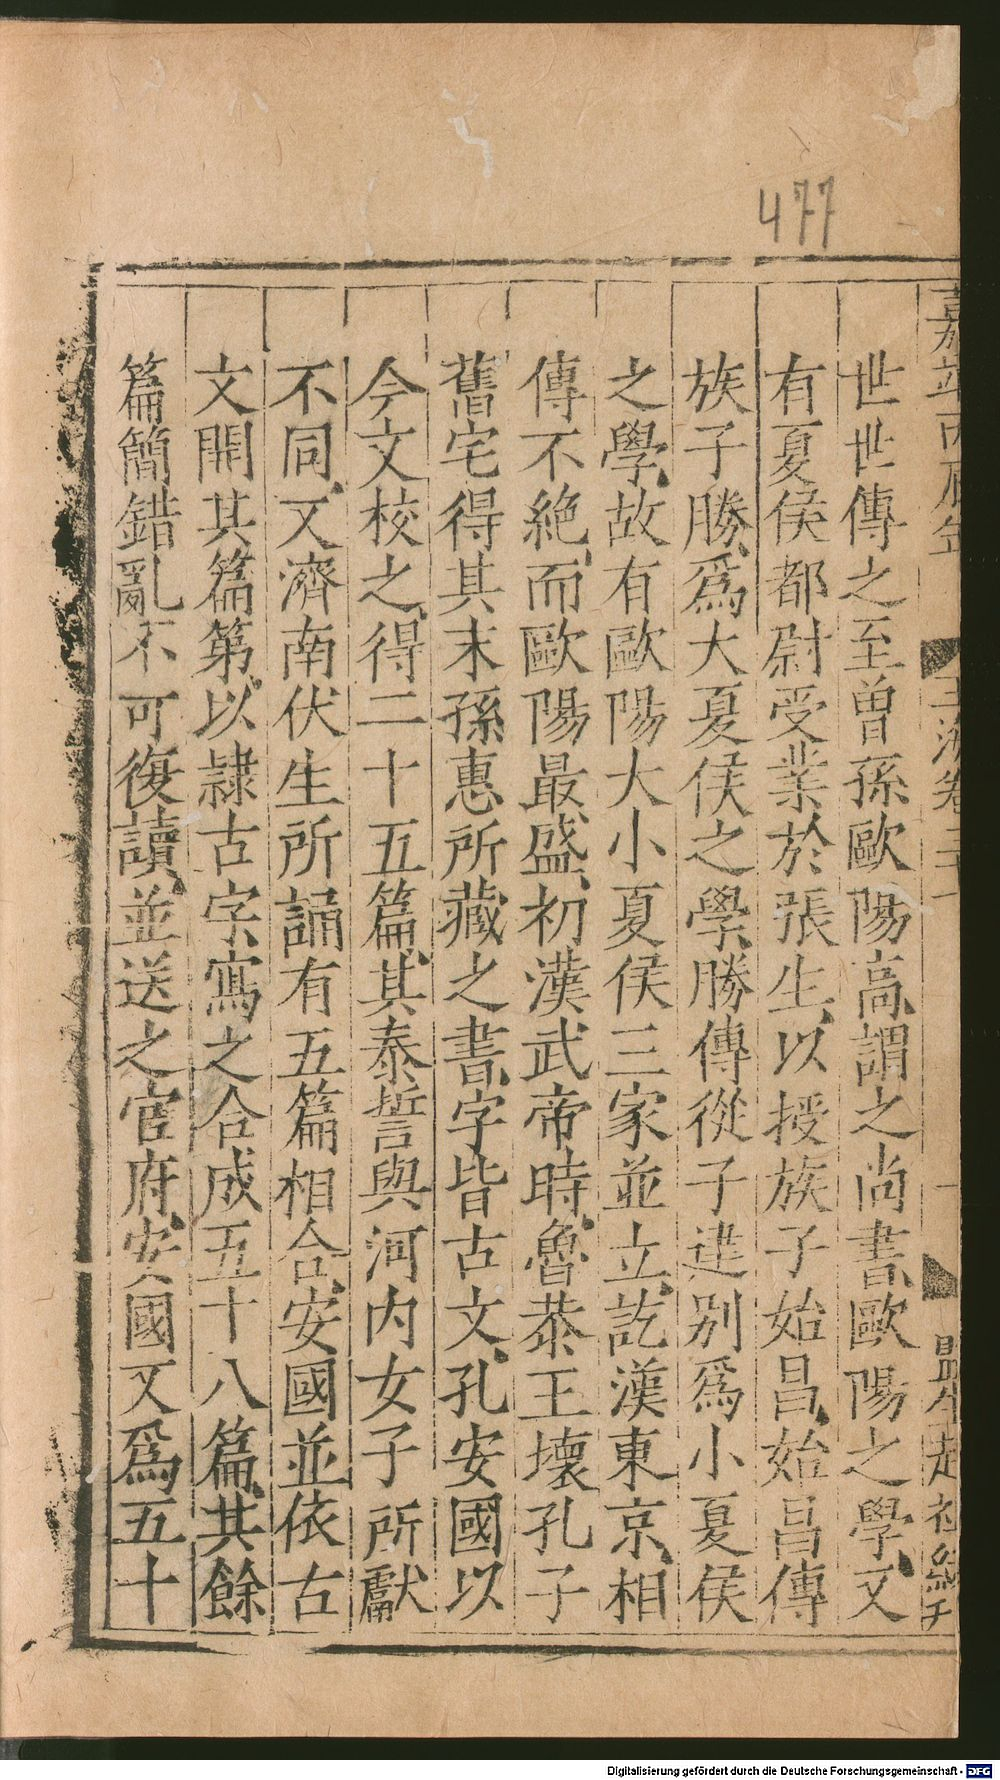 477
世世傳之至曾孫歐陽高謂之尚書歐陽之學又
有夏侯都尉受業於張生以授族子始昌始昌傳
族子勝爲大夏侯之學勝傳從子建別爲小夏侯
之學故有歐陽大小夏侯三家並立訖漢東京相
傳不絶而歐陽最盛初漢武帝時魯恭王壞孔子
舊宅得其末孫惠所藏之書字皆古文孔安國以
今文校之得二十五篇其泰誓與河内女子所獻
不同又濟南伏生所誦有五篇相合安國並依古
文開其篇第以隷古字寫之合成五十八篇其餘
篇簡錯亂不可復讀並送之官府安國又爲五十
Digitalisierung gefördert durch die Deutsche Forschungsgemeinschaft - DFG